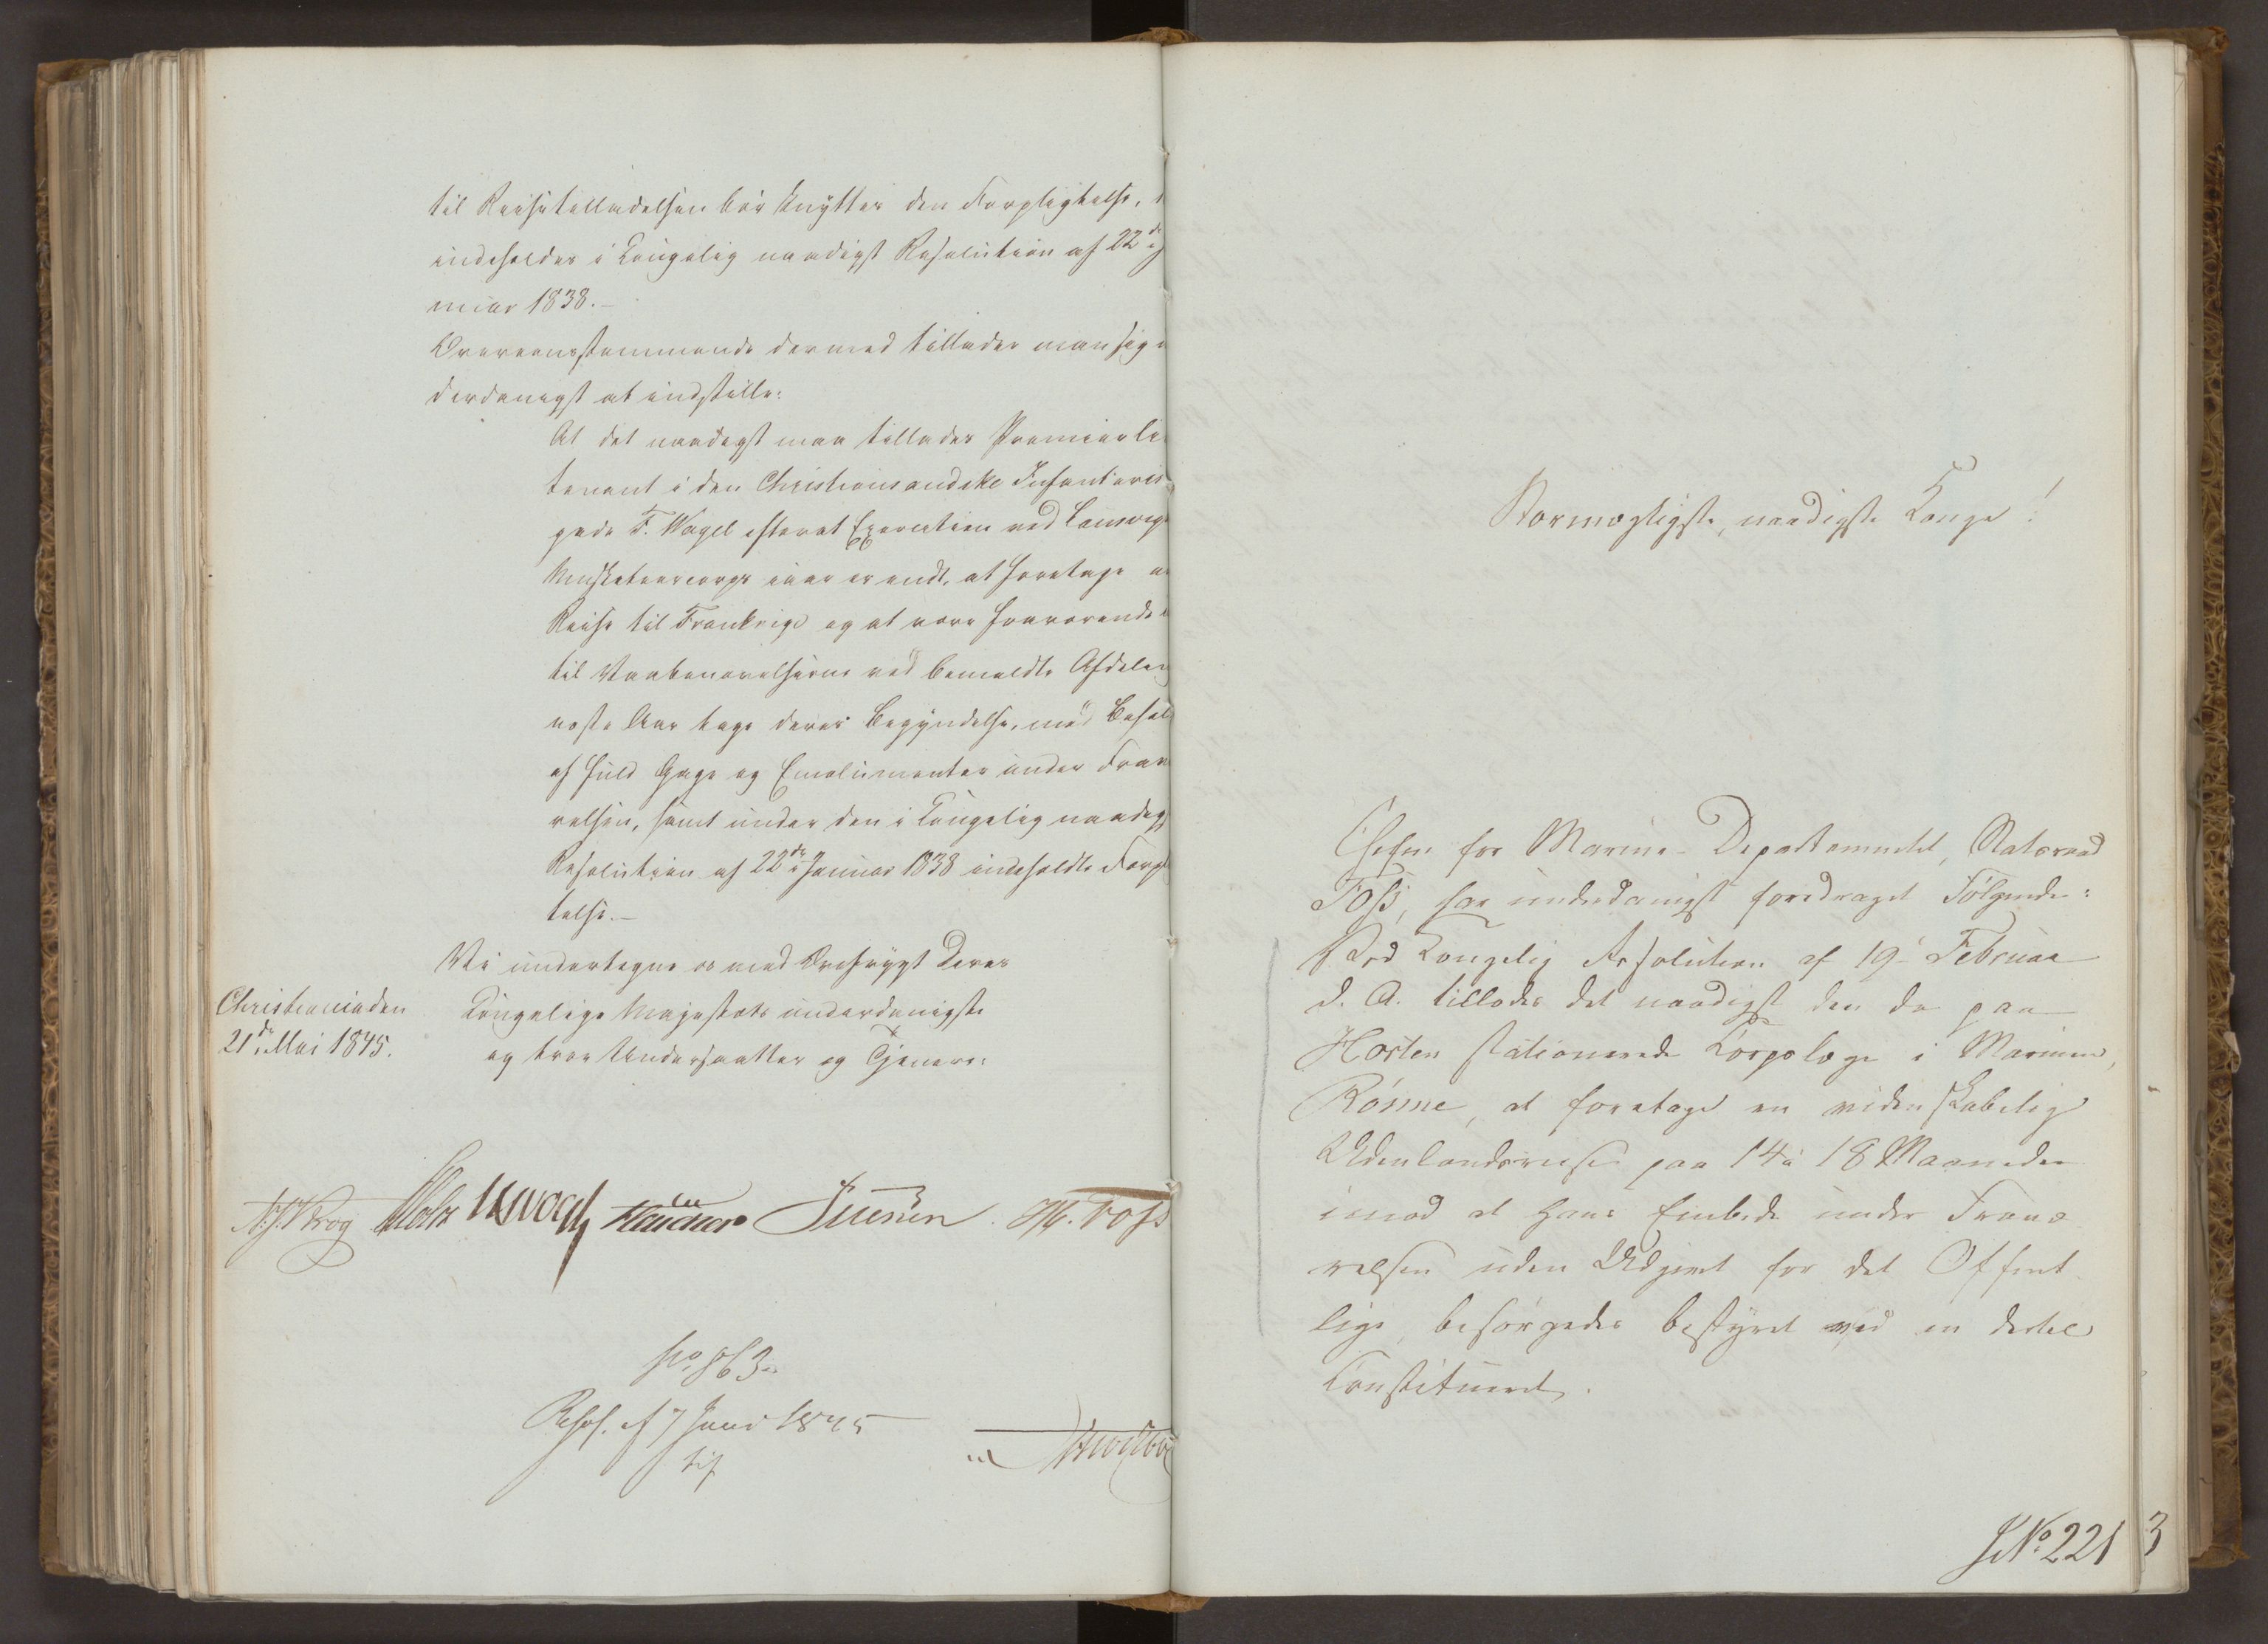 til Reisetilladelsen bør knyttes den Forpligtelse,
indeholdes i Kongelig naadigst Resolution af 22de
nuar 1838.-
Overeensstemmende dermed tillader man sig
derdanigst at indstille:
At det naadigst maa tillades Premierli
tenant i den Christiansandske Infanterie
gade F. Wagel efterat Exercitien ved
Musketeercorps iaar er endt, at foretage
Reise til Frankrige og at være fraværende
til Vaabenøvelserne ved bemeldte Afdeling
næste Aar tage deres Begyndelse, med Behold
af fuld Gage og Emolumenter under Fravæ
relsen, samt under den i Kongelig naadigst
Resolution af 22de Januar 1838 indeholdte Forpl
telse.-
Vi undertegne os med Ærefrygt Deres
Christiania den
21de Mai 1845.
Kongelige Majestæts underdanigste
og troe Undersaatter og Tjenere:
N. J. Krog Holst J. H. Vogt Sibbern H. Foss
No. 863
Resol. af 7 Juni 1845
Stormægtigste, naadigste Konge!
Chefen for Marine-Departementet, Statsraad
Foss, har underdanigst foredraget Følgende:
Ved Kongelig Resolution af 19 Februar
d. A. tillodes det naadigst den da paa
Horten stationerede Korpslæge i Marinen,
Rønne, at foretage en videnskabelig
Udenlandsreise paa 14 à 18 Maaneder
imod at hans Embede under Fravæ
relsen uden Udgivt for det Offent
lige besørgedes bestyret ved en dertil
Constitueret.
J No. 221 3